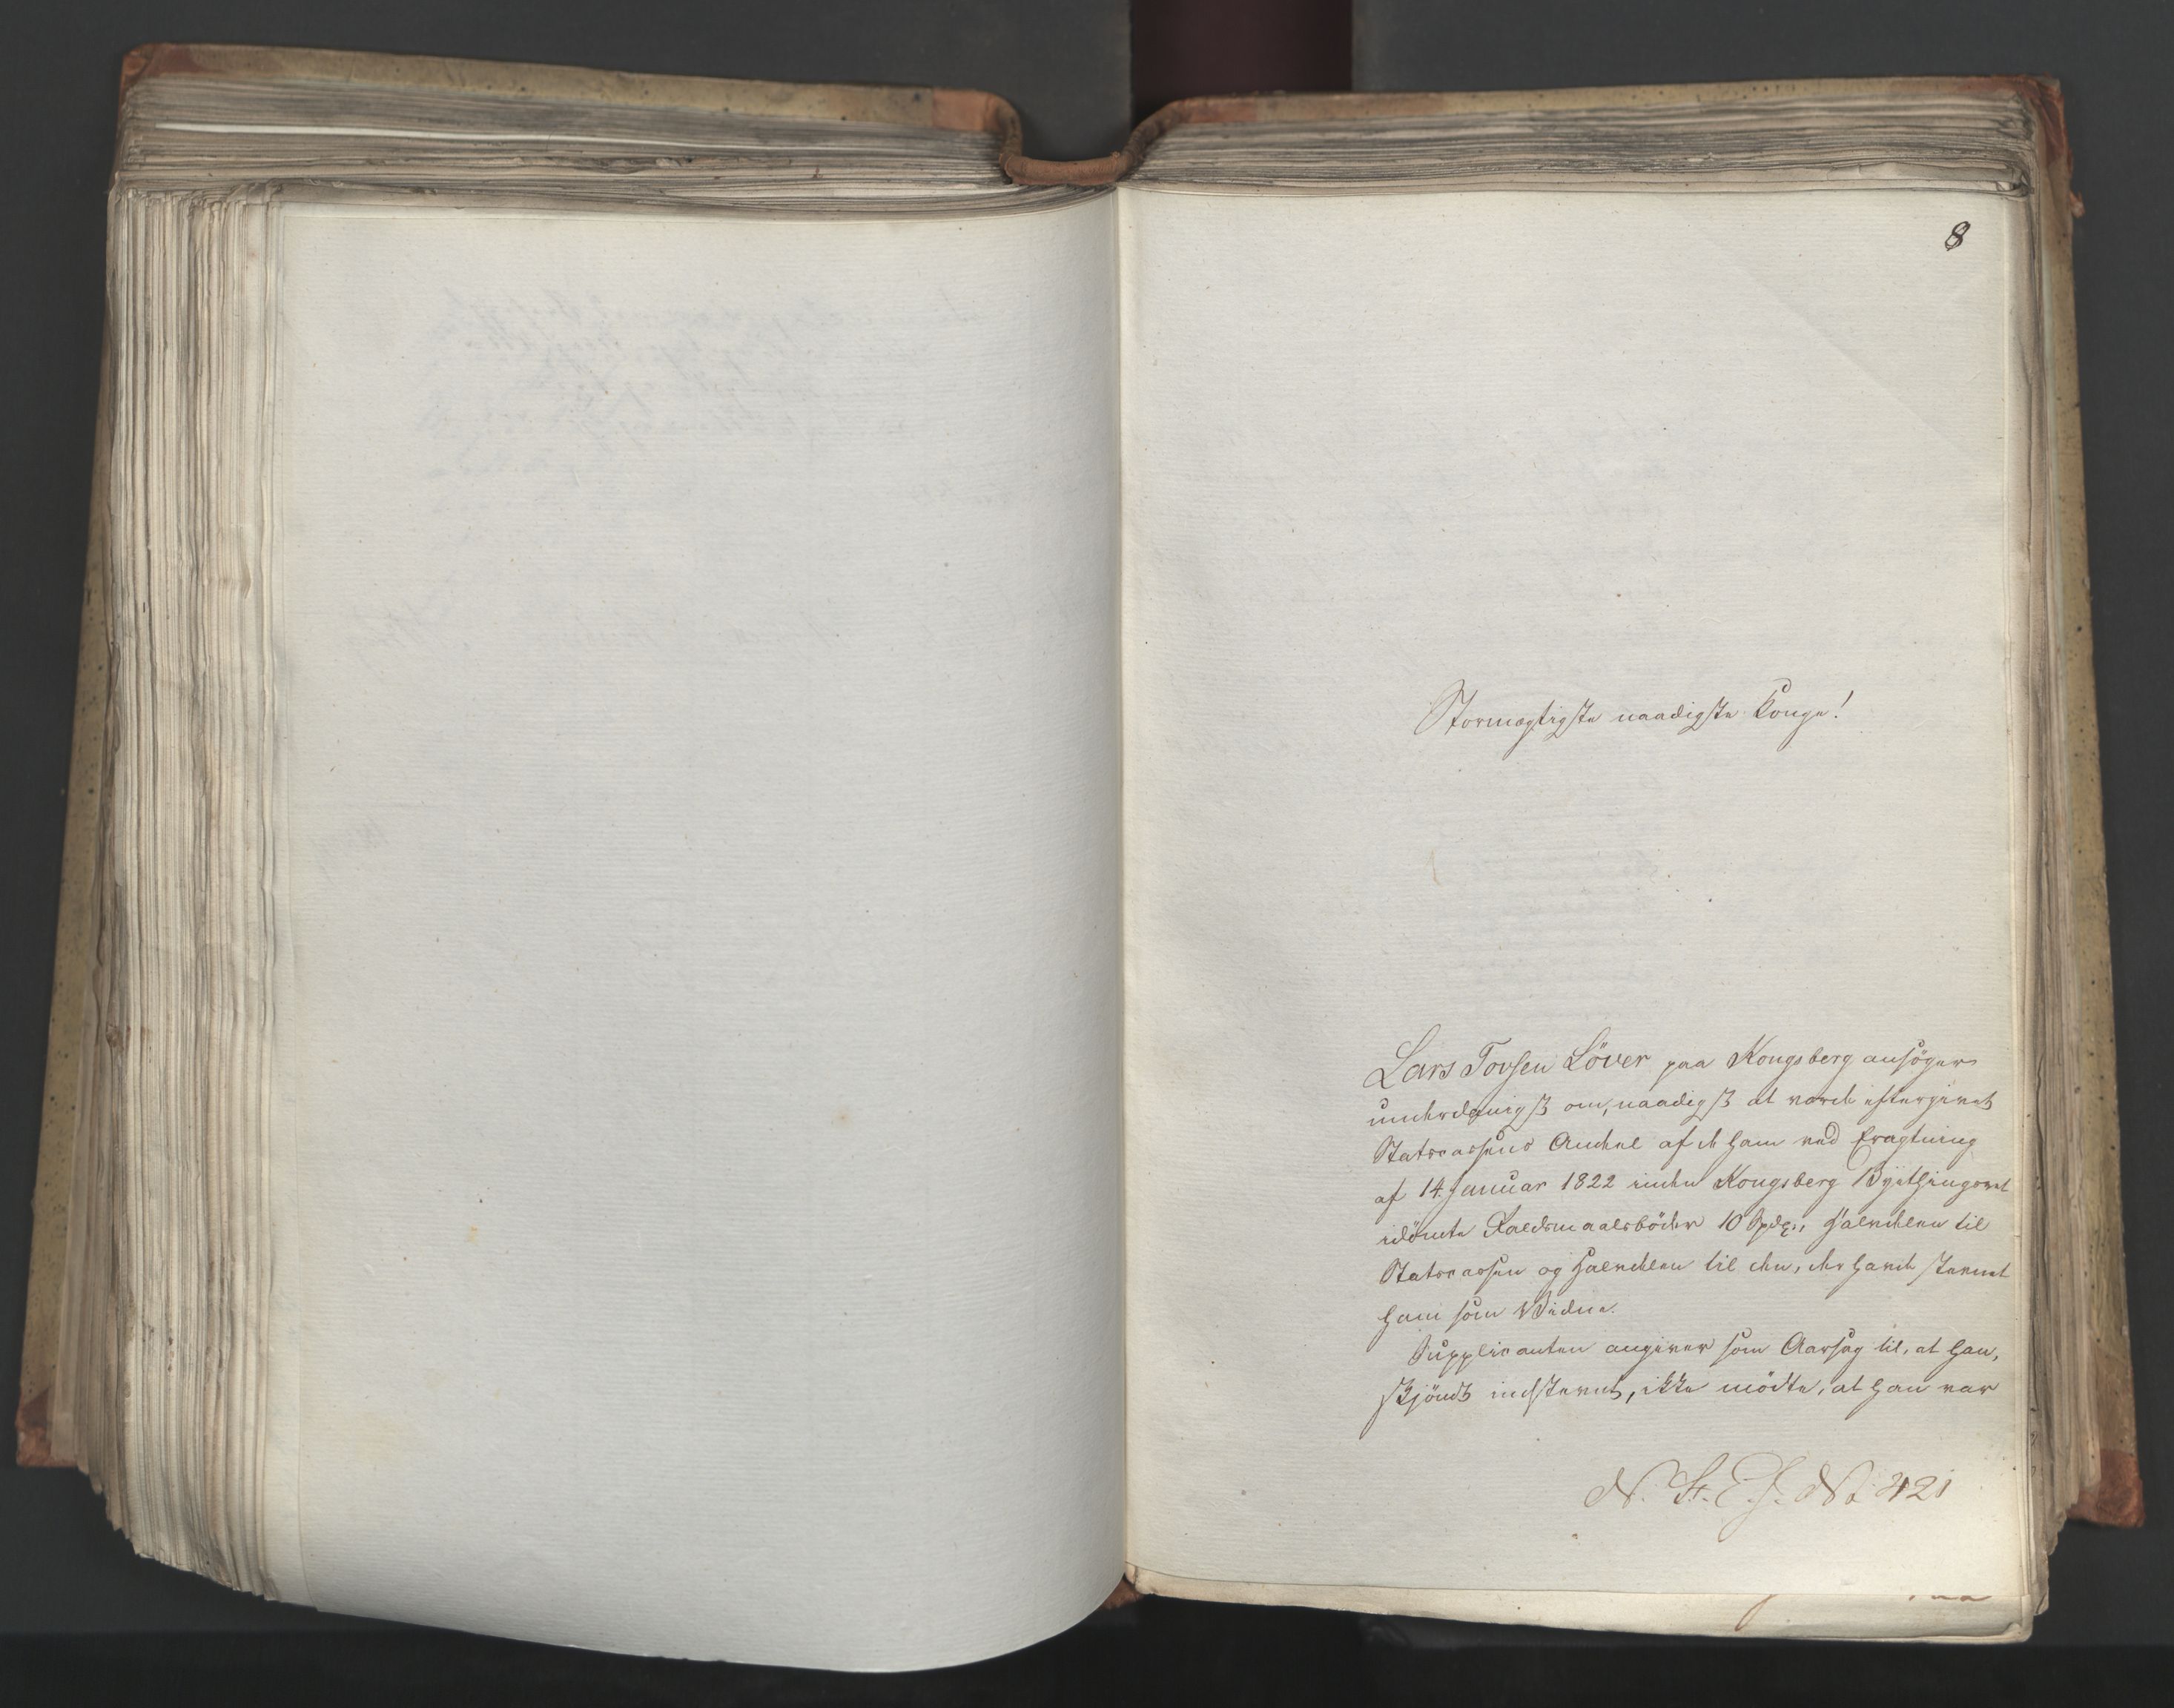 8
Stormægtigste naadigste Konge!
Lars Torsen Löver paa Kongsberg ansöger
underdanigst om, naadigst at vorde eftergivet
Statscassens Andeel af de ham ved Eragtning
af 14 Januar 1822 inden Kongsberg Byethingsret
idömte Faldsmaalsböder 10 Spd., Halvdelen til
Statscassen og Halvdelen til den, der havde stevnet
ham som Vidne.
Supplicanten angiver som Aarsag til, at han,
skjöndt indstevnt, ikke mödte, at han var
N. St. E. J. No 421